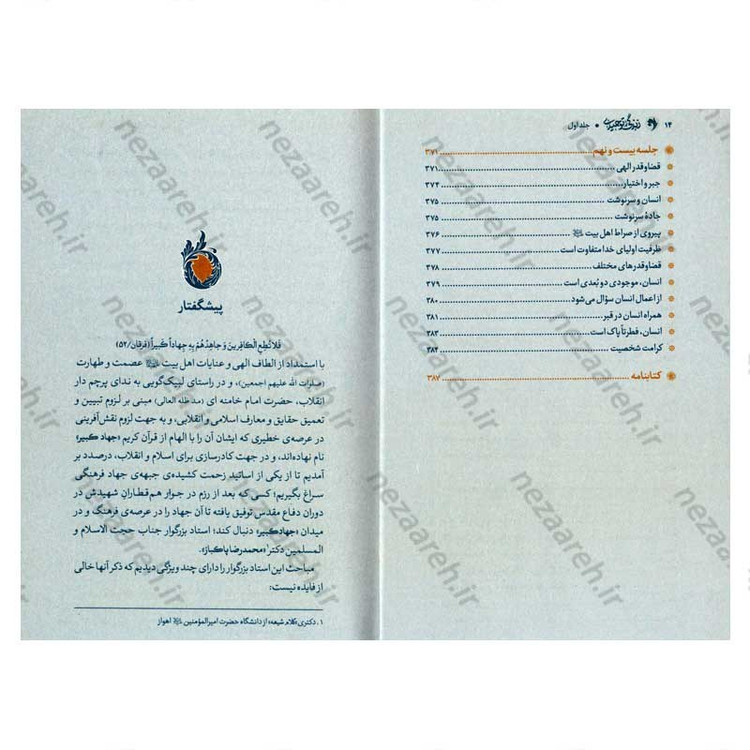 ۱۴ جلد اول
جلسه بیست و نهم ۳۷۱
قضا و قدر الهی ۳۷۱
جبر و اختیار ۳۷۴
انسان و سرنوشت ۳۷۵
جادهٔ سرنوشت ۳۷۵
پیروی از صراط اهل بیت ۳۷۶
ظرفیت اولیای خدا متفاوت است ۳۷۷
قضا و قدرهای مختلف ۳۷۸
انسان، موجودی دو بُعدی است ۳۷۹
از اعمال انسان سؤال می‌شود ۳۸۰
همراه انسان در قبر ۳۸۱
انسان، فطرتاً پاک است ۳۸۳
کرامت شخصیت ۳۸۴
کتابنامه ۳۸۷
پیشگفتار
فَلا تُطِعِ الْکافِرینَ وَ جاهِدْهُمْ بِهِ جِهاداً کَبیراً (فرقان/۵۲)
با استمداد از الطاف الهی و عنایات اهل بیت عصمت و طهارت
(صلوات الله علیهم اجمعین)، و در راستای لبیک‌گویی به ندای پرچم دار
انقلاب، حضرت امام خامنه ای (مد ظله العالی) مبنی بر لزوم تبیین و
تعمیق حقایق و معارف اسلامی و انقلابی، و به جهت لزوم نقش‌آفرینی
در عرصه‌ی خطیری که ایشان آن را با الهام از قرآن کریم «جهاد کبیر»
نام نهاده‌اند، و در جهت کادرسازی برای اسلام و انقلاب، درصدد بر
آمدیم تا از یکی از اساتید زحمت کشیده‌ی جبهه‌ی جهاد فرهنگی
سراغ بگیریم؛ کسی که بعد از رزم در جوار هم قطاران شهیدش در
دوران دفاع مقدس توفیق یافته تا آن جهاد را در عرصه‌ی فرهنگ و در
میدان «جهاد کبیر» دنبال کند؛ استاد بزرگوار جناب حجت الاسلام و
المسلمین دکتر۱ «محمدرضا پاکباز».
مباحث این استاد بزرگوار را دارای چند ویژگی دیدیم که ذکر آنها خالی
از فایده نیست:
۱. دکتری «کلام شیعه» از دانشگاه حضرت امیرالمؤمنین اهواز
nezaareh.ir